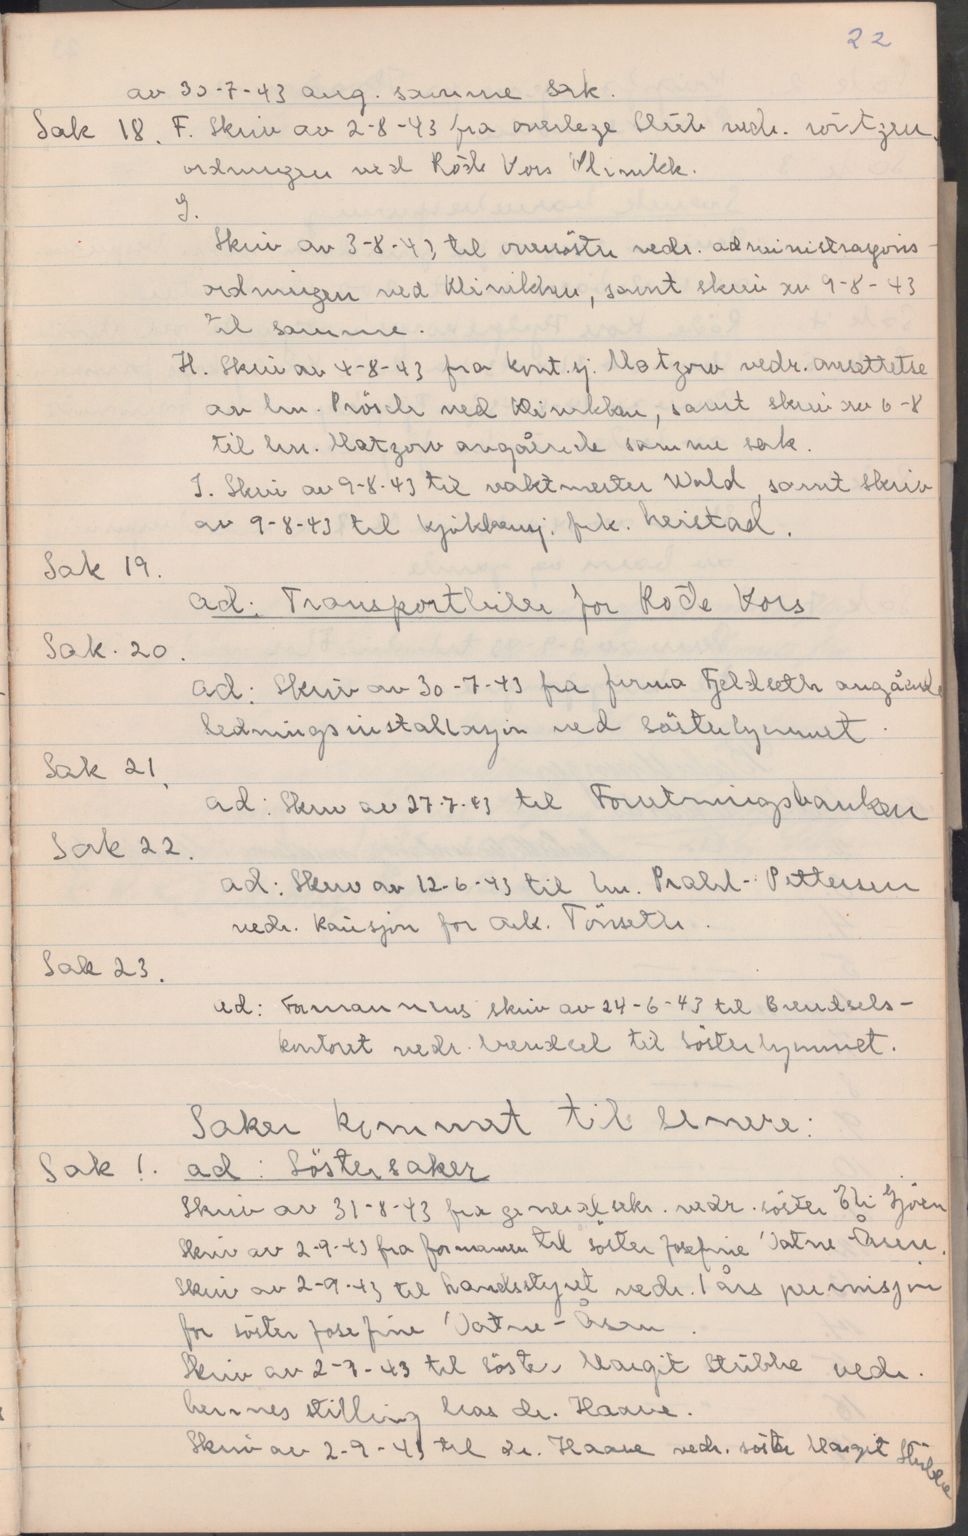 22
av 30-7-43 ang. samme sak.
Sak 18. F. Skriv av 2-8-43 fra overlege vedr. röntgen
ordningen ved Röde Kors Klinikk.
G.
Skriv av 3-8-43 til oversöster vedr. administrasjons-
ordningen ved Klinikken, samt skriv av 9-8-43
til samme.
H. Skriv av 4-8-43 fra kont.sj. Matzow vedr. ansettelse
av hr. Prösch ved Klinikken, samt skriv av 6-8
til hr. Matzow angående samme sak.
I. Skriv av 9-8-43 til vaktmester Wold, samt skriv
av 9-8-43 til kjökkensj. frk. Heistad.
Sak 19.
ad: Transportbiler for Rode Kors
Sak. 20.
ad: Skriv av 30-7-43 fra firma Fjeldseth angående
ledningsinstallasjon ved Sösterhjemmet.
Sak 21.
ad: Skriv av 27-7-43 til Forretningsbanken
Sak 22.
ad: Skriv av 12-6-43 til hr. Prahl-Pettersen
vedr. kausjon for ark. Tönseth.
Sak 23.
ad: Formannens skriv av 24-6-43 til Brendsels-
kontoret vedr. brendsel til Sösterhjemmet.
Saker kommet til senere:
Sak 1. ad: Söstersaker
Skriv av 31-8-43 fra generalsekr. vedr. söster Eli Gjöen
Skriv av 2-9-43 fra formannen til söster Josefine Vatne Åsen.
Skriv av 2-9-43 til Landsstyret vedr. 1 års permisjon
for söster Josefine Vatne-Åsen.
Skriv av 2-9-43 til Söster Margit Stübbe vedr.
hennes stilling hos dr. Haave.
Skriv av 2-9-43 til dr. Haave vedr. söster Margit Stübbe